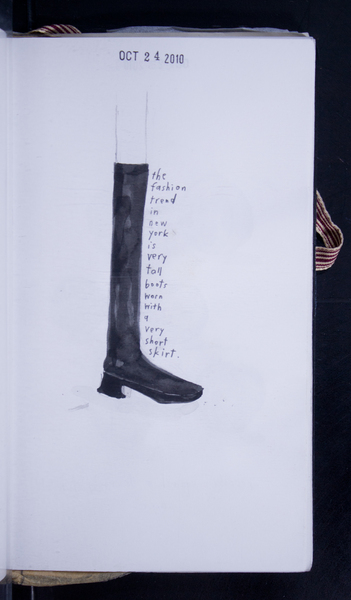 OCT 24 2010
the
fashion
trend
in
new
york
is
very
tall
boots
worn
with
a
very
short
skirt.